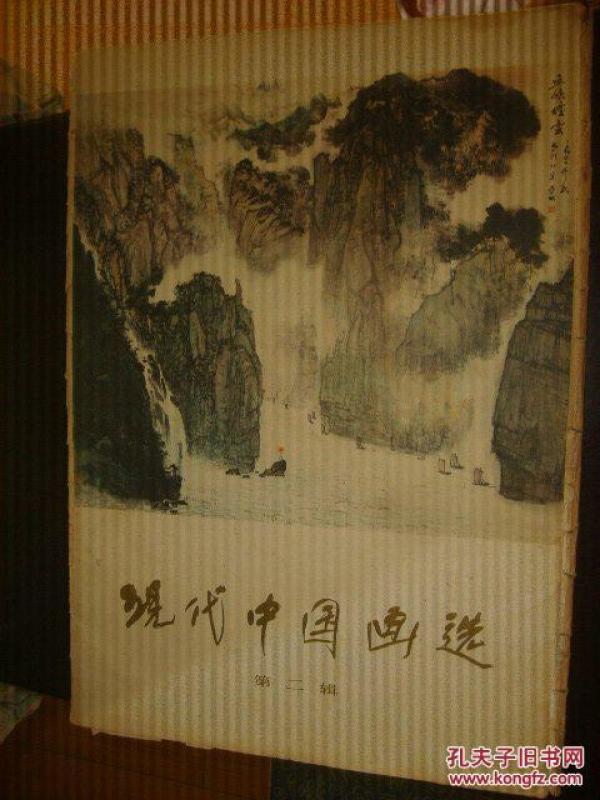 现代中国画选
第二辑
孔夫子旧书网
www.kongfz.com